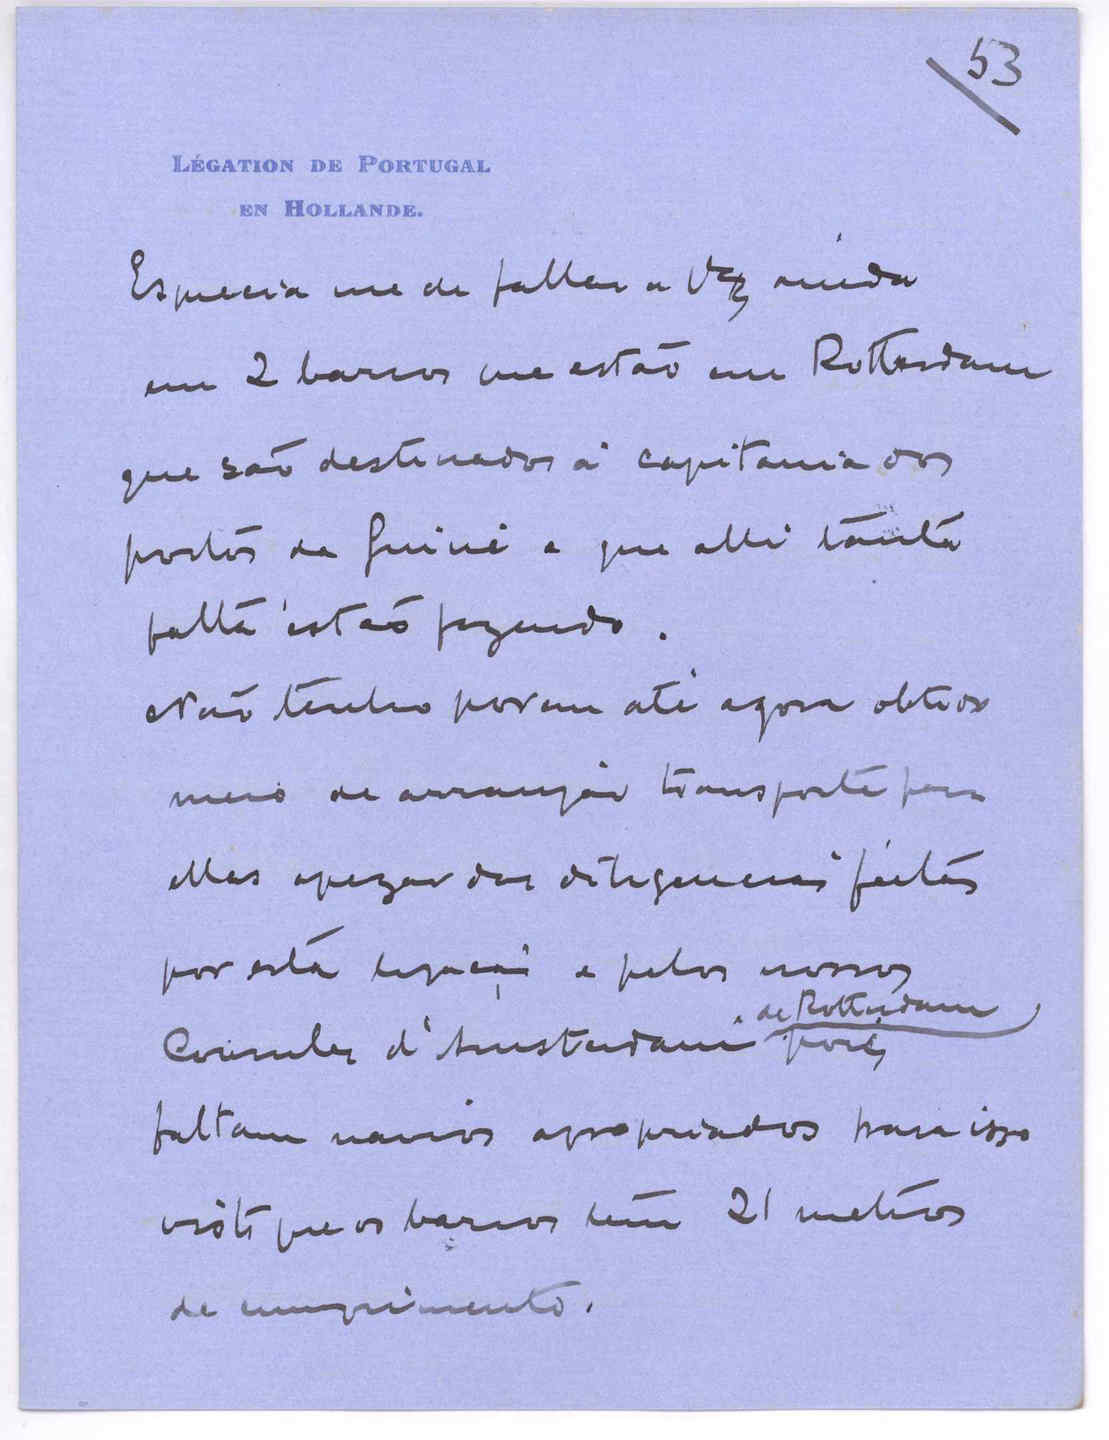 53
LÉGATION DE PORTUGAL
EN HOLLANDE.
Esquecia me de fallar a V. ainda
em 2 barcos que estão em Rotterdam
que são destinados á capitania dos
portos da Guiné e que alli tanta
falta estão fazendo.
Não tenho porem até agora obtido
meio de arranjar transporte para
elles apezar das diligencias feitas
por esta legação e pelos nossos
Consules d'Amsterdam e de Rotterdam, pois
faltam navios apropriados para isso
visto que os barcos tem 21 metros
de cumprimento.